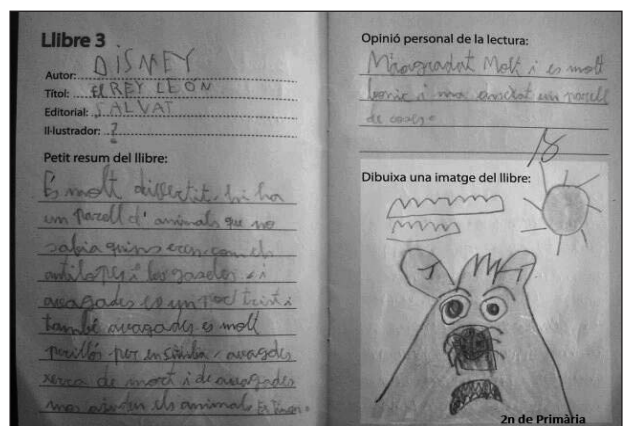 Llibre 3
Autor: DISNEY
Títol: El REY LEÓN
Editorial: SALVAT
Il·lustrador: ?
Petit resum del llibre:
És molt divertit, hi ha
un parell d'animals que no
sabia quins eren com els
antilopes i les gaseles i
avagades es un poc trist i
també avagades es molt
perillós per en simba avagades
xerca de mort i de avagades
mos ajuden els animals
Opinió personal de la lectura:
Miaagradat Molt i es molt
bonic i ma ensenyat un parell
de coses.
Dibuixa una imatge del llibre:
2n de Primària